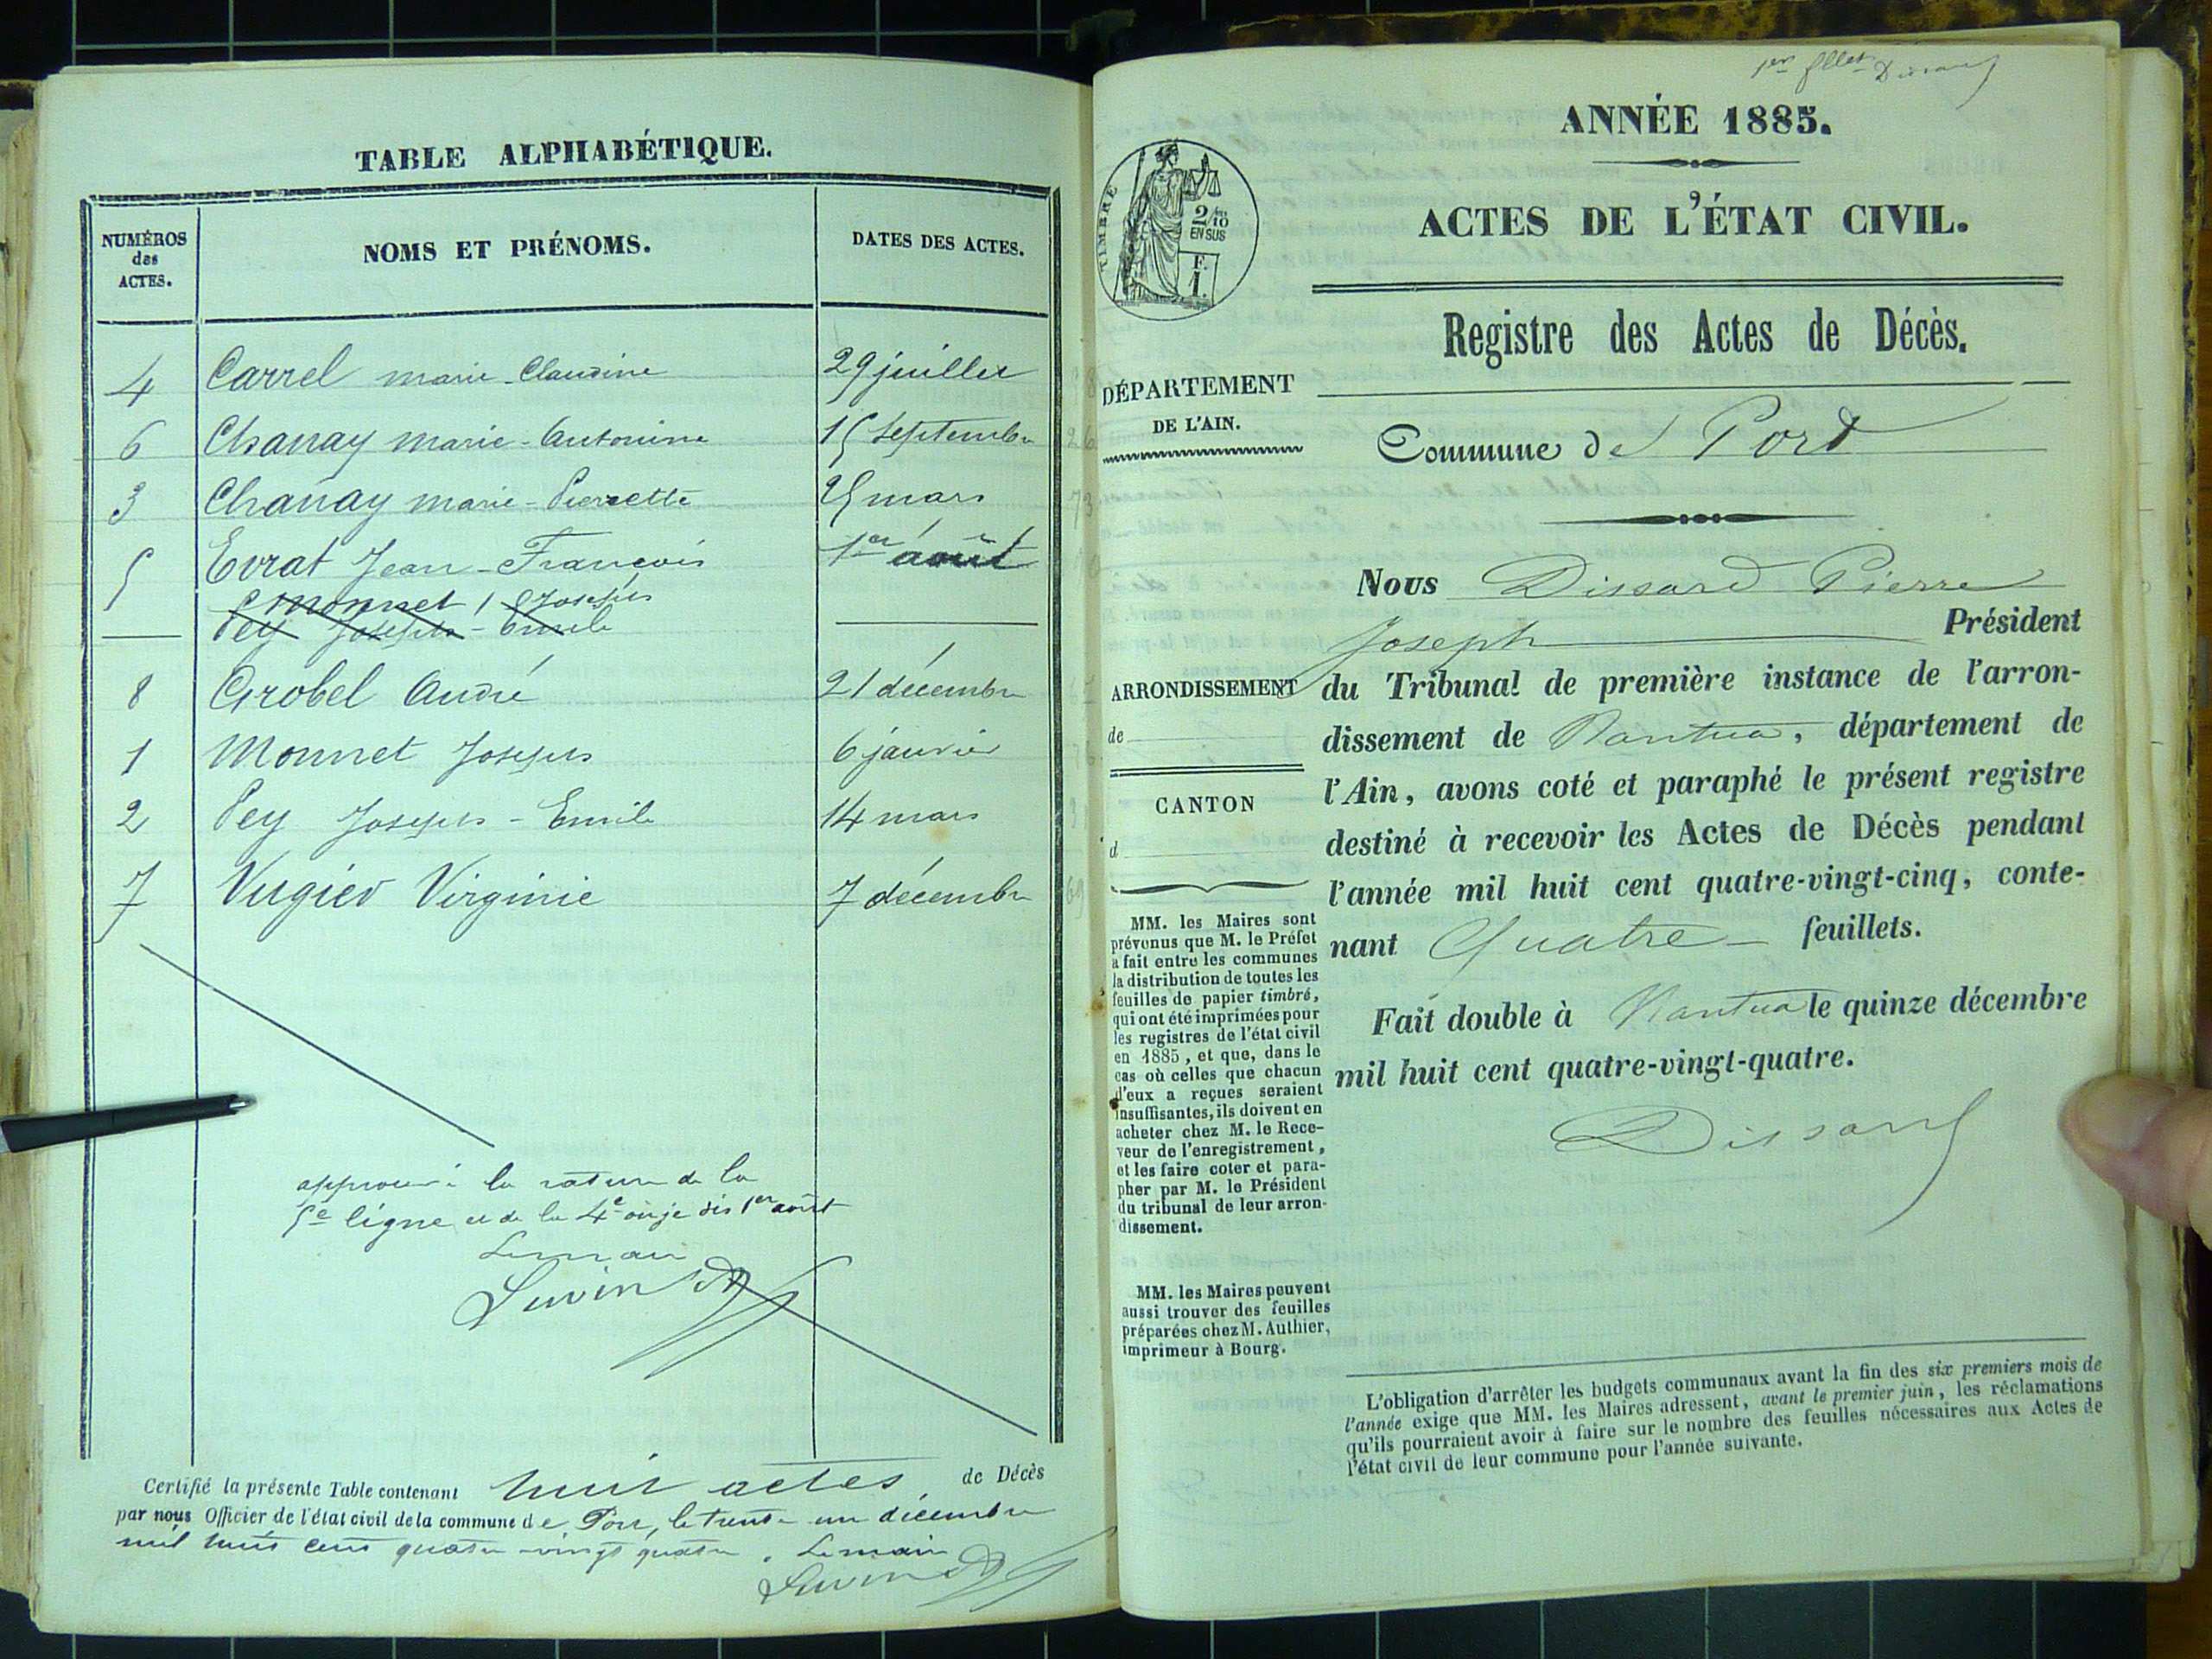 TABLE ALPHABÉTIQUE.
NUMÉROS
des
ACTES.
NOMS ET PRÉNOMS.
DATES DES ACTES.
4 Carrel marie-Claudine 29 juillet
6 Chanay marie-Antonine 15 septembre
3 Chanay marie-Pierrette 25 mars
5 Evrat Jean-François 1er août
Monnet Joseph
Pey Joseph-Emile
8 Grobel André 21 décembre
1 Monnet Joseph 6 janvier
2 Pey Joseph-Emile 14 mars
7 Vugier Virginie 7 décembre
approuvé la rature de la
5e ligne et de la 4e 1er août
Le maire
Certifié la présente Table contenant huit actes de Décès
par nous Officier de l'état civil de la commune de Port, le trente un décembre
mil huit cent quatre-vingt quatre. Le maire
1er fllet Dissard
ANNÉE 1885.
ACTES DE L'ÉTAT CIVIL.
TIMBRE
2/10
EN SUS
F.
1.
Registre des Actes de Décès.
DÉPARTEMENT
DE L'AIN.
Commune de Port
Nous Dissard Pierre
Joseph Président
du Tribunal de première instance de l'arron-
dissement de Nantua, département de
l'Ain, avons coté et paraphé le présent registre
destiné à recevoir les Actes de Décès pendant
l'année mil huit cent quatre-vingt-cinq, conte-
nant Quatre feuillets.
Fait double à Nantua le quinze décembre
mil huit cent quatre-vingt-quatre.
Dissard
ARRONDISSEMENT
de
CANTON
d
MM. les Maires sont
prévenus que M. le Préfet
a fait entre les communes
la distribution de toutes les
feuilles de papier timbré,
qui ont été imprimées pour
les registres de l'état civil
en 1885, et que, dans le
cas où celles que chacun
d'eux a reçues seraient
insuffisantes, ils doivent en
acheter chez M. le Rece-
veur de l'enregistrement,
et les faire coter et para-
pher par M. le Président
du tribunal de leur arron-
dissement.
MM. les Maires peuvent
aussi trouver des feuilles
préparées chez M. Authier,
imprimeur à Bourg.
L'obligation d'arrêter les budgets communaux avant la fin des six premiers mois de
l'année exige que MM. les Maires adressent, avant le premier juin, les réclamations
qu'ils pourraient avoir à faire sur le nombre des feuilles nécessaires aux Actes de
l'état civil de leur commune pour l'année suivante.